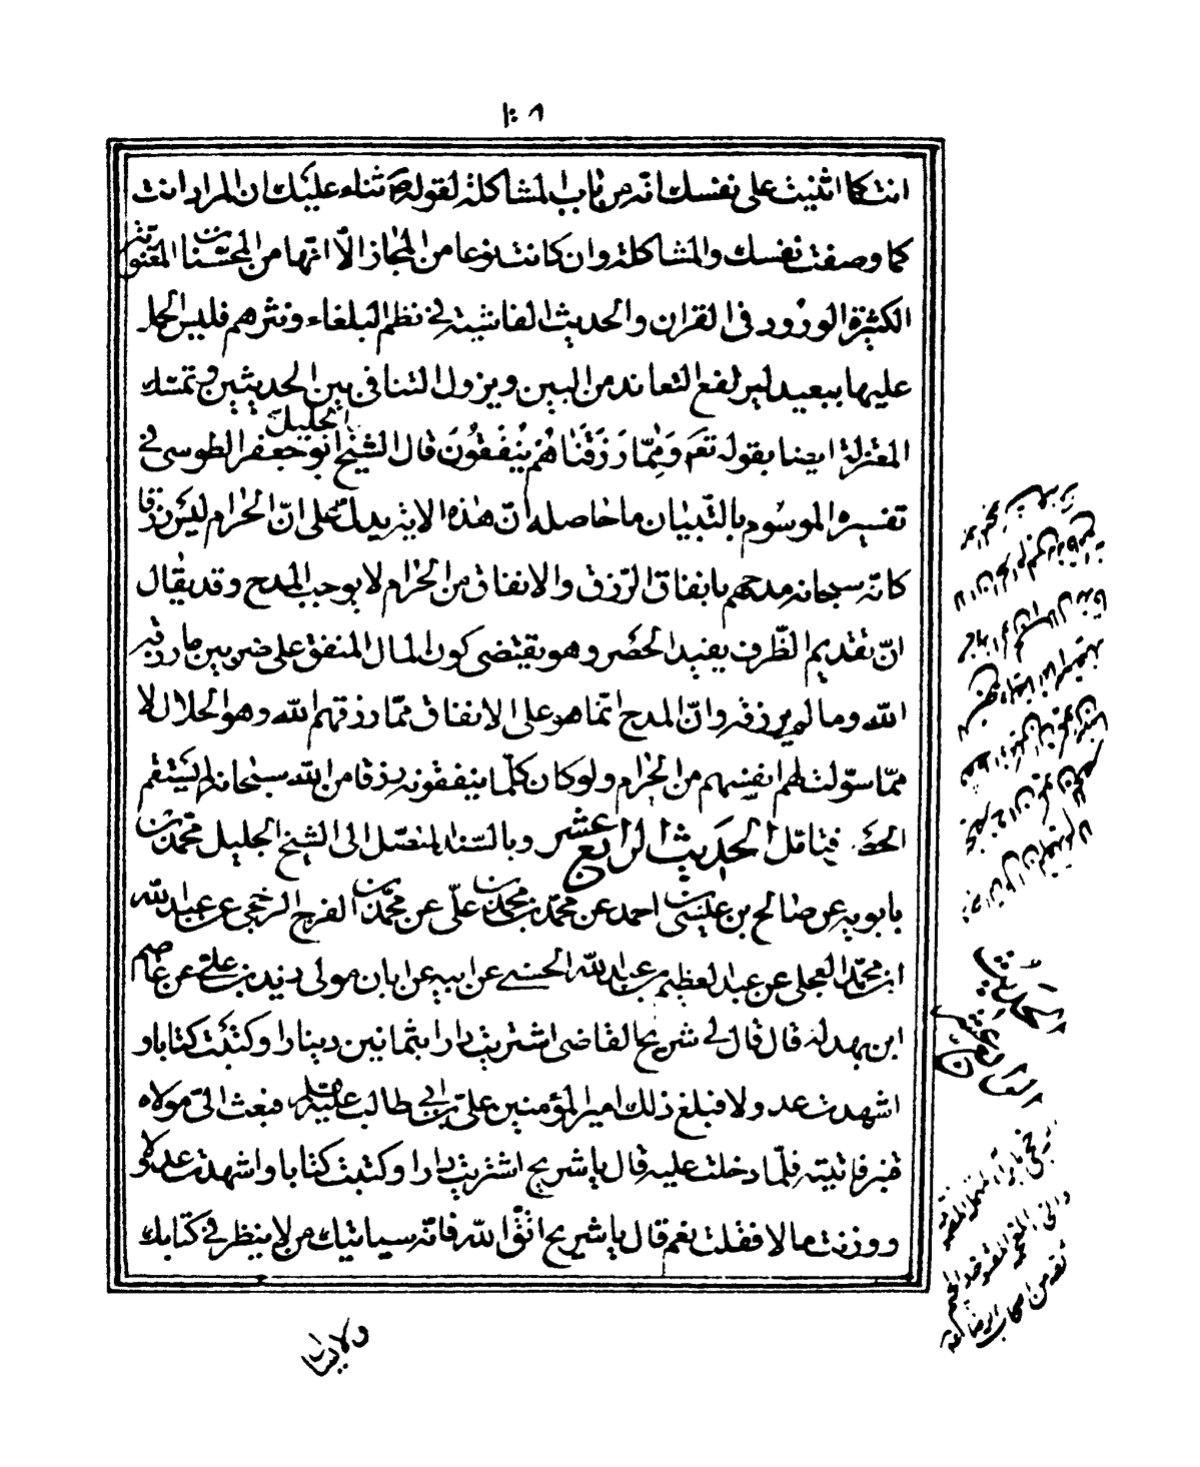 ١٠٨
انت كما اثنيت على نفسك انه من باب المشاكلة لقوله ص ثناء عليك ان المراد انت
كما وصفت نفسك والمشاكلة وان كانت نوعا من المجاز الّا انّها من المحسّنات المعنويّة
الكثيرة الورود فى القران والحديث الفاشية فى نظم البلغاء ونثرهم فليس الحمل
عليها ببعيد ليرتفع التعاند من البين ويزول التنافى بين الحديثين وتمسّك
المعتزلة ايضا بقوله تعم وَمِمّا رَزَقْنَاهُمْ يُنْفِقُونَ قال الشيخ الجليل ابو جعفر الطوسى فى
تفسيره الموسوم بالتّبيان ما حاصله انّ هذه الاية يدل على انّ الحرام ليس رزقا
لانّه سبحانه مدحهم بانفاق الرّزق والانفاق من الحرام لا يوجب المدح وقد يقال
انّ تقديم الظّرف يفيد الحصر وهو يقتضى كون المال المنفق على ضربين ما رزقه
اللّه وما لم يرزقه وانّ المدح انّما هو على الانفاق ممّا رزقهم اللّه وهو الحلال لا
ممّا سوّلت لهم انفسهم من الحرام ولو كان كلّما ينفقونه رزقا من اللّه سبحانه لم يستقم
الحصر فتامّل الحديث الرابع عشر وبالسّند المتصّل الى الشيخ الجليل محمّد بن
بابويه عن صالح بن عيسى بن احمد عن محمّد بن محمّد بن علىّ عن محمّد بن الفرج الرخجى عن عبد اللّه
ابن محمّد العجلى عن عبد العظيم بن عبد اللّه الحسنى عن ابيه عن ابان مولى زيد بن علىّ عن عاصم
ابن بهدلة قال قال لى شريح القاضى اشتريت دارا بثمانين دينارا وكتبت كتابا و
اشهدت عدولا فبلغ ذلك امير المؤمنين علىّ بن ابى طالب عليه السلم فبعث الىّ مولاه
قنبر فاتيته فلمّا دخلت عليه قال يا شريح اشتريت دارا وكتبت كتابا واشهدت عدولا
ووزنت مالا فقلت نعم قال يا شريح اتّق اللّه فانّه سياتيك من لا ينظر فى كتابك
الحديث
الرابع عشر
ثقة من اصحاب الرضا
ولا يسال